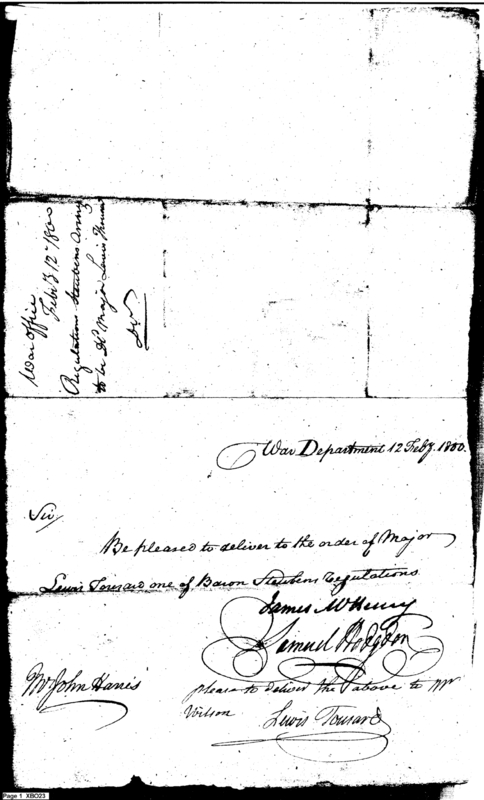 War Office
Feby 12th 1800
Regulations Steubens Army
to be Dd Major Lewis
War Department 12 Feby. 1800.
Sir,
Be pleased to deliver to the order of Major
Lewis Tousard one of Baron Steubens regulations
James McHenry
Samuel Hodgdon
Mr John Harris
please to deliver the above to Mr
Wilson
Lewis Tousard
Page 1 XBO23